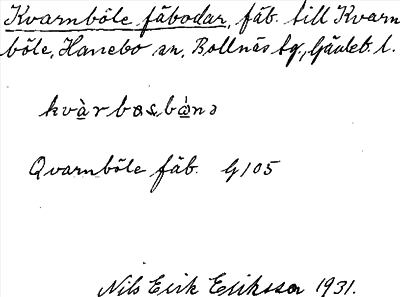 Kvarnböle fäbodar, fäb. till Kvarn
böle, Hanebo sn, Bollnäs tg., Gävleb. l.
Qvarnböle fäb. G 105
Nils Erik Eriksson 1931.